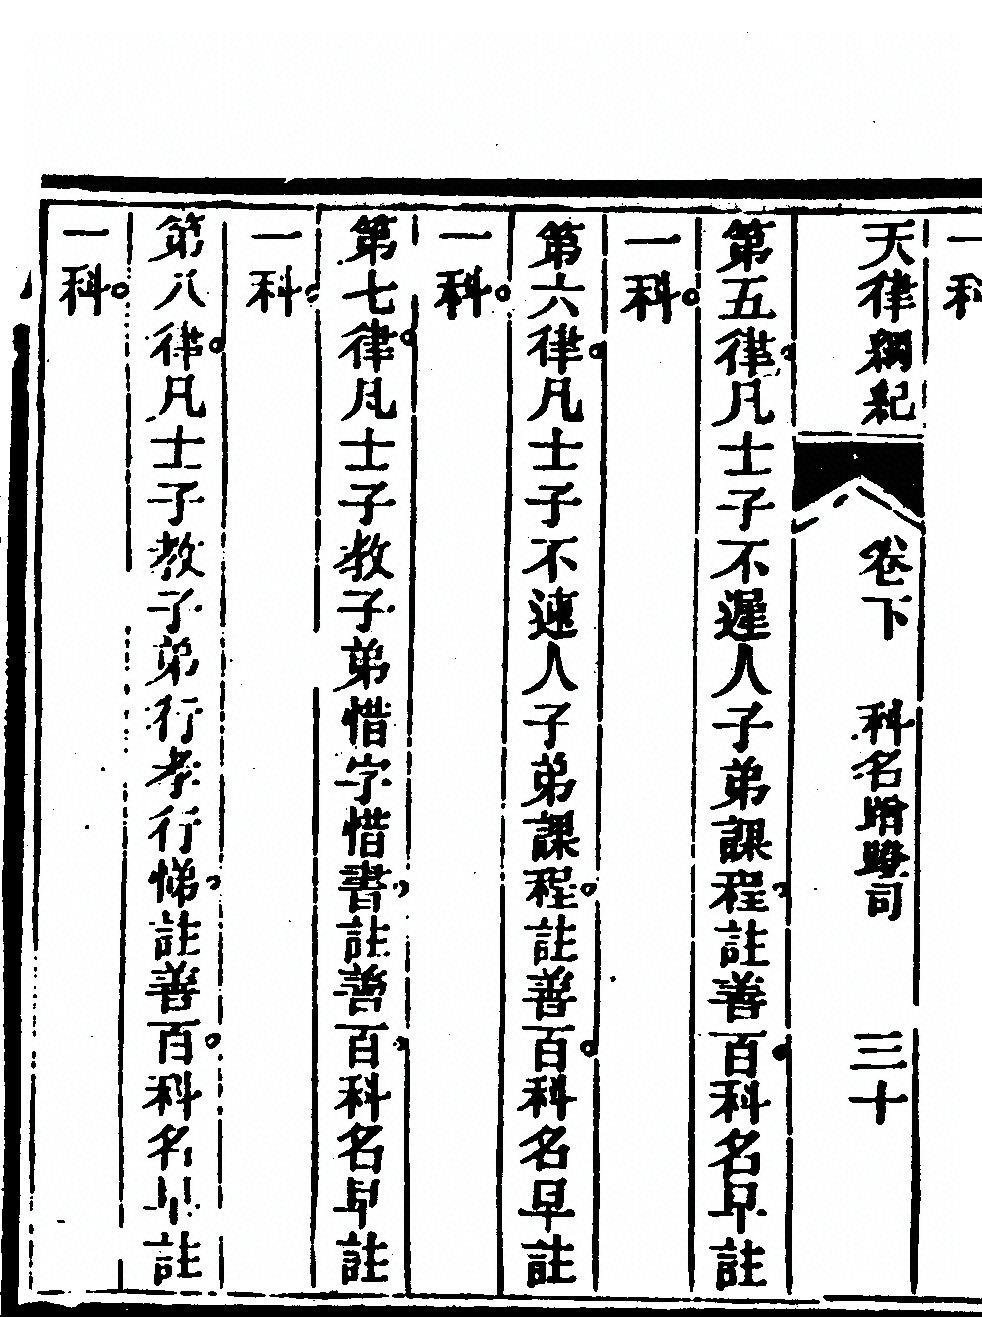 一科
天律綱紀 卷下 科名 司 三十
第五律凡士子不遲人子弟課程註善百科名早註
一科
第六律凡士子不速人子弟課程註善百科名早註
一科
第七律凡士子教子弟惜字惜書註善百科名早註
一科
第八律凡士子教子弟行孝行悌註善百科名早註
一科